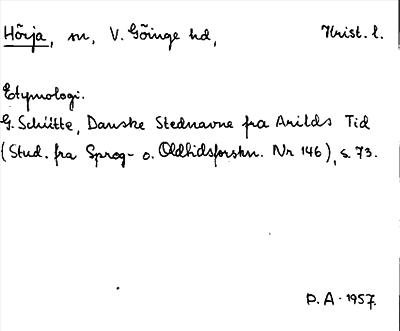 Hörja, sn, V. Göinge hd, Krist. l.
Etymologi.
G. Schütte, Danske Stednavne fra Arilds Tid
(Stud. fra Sprog- o. Oldtidsforskn. Nr 146), s. 73.
P. A. 1957.